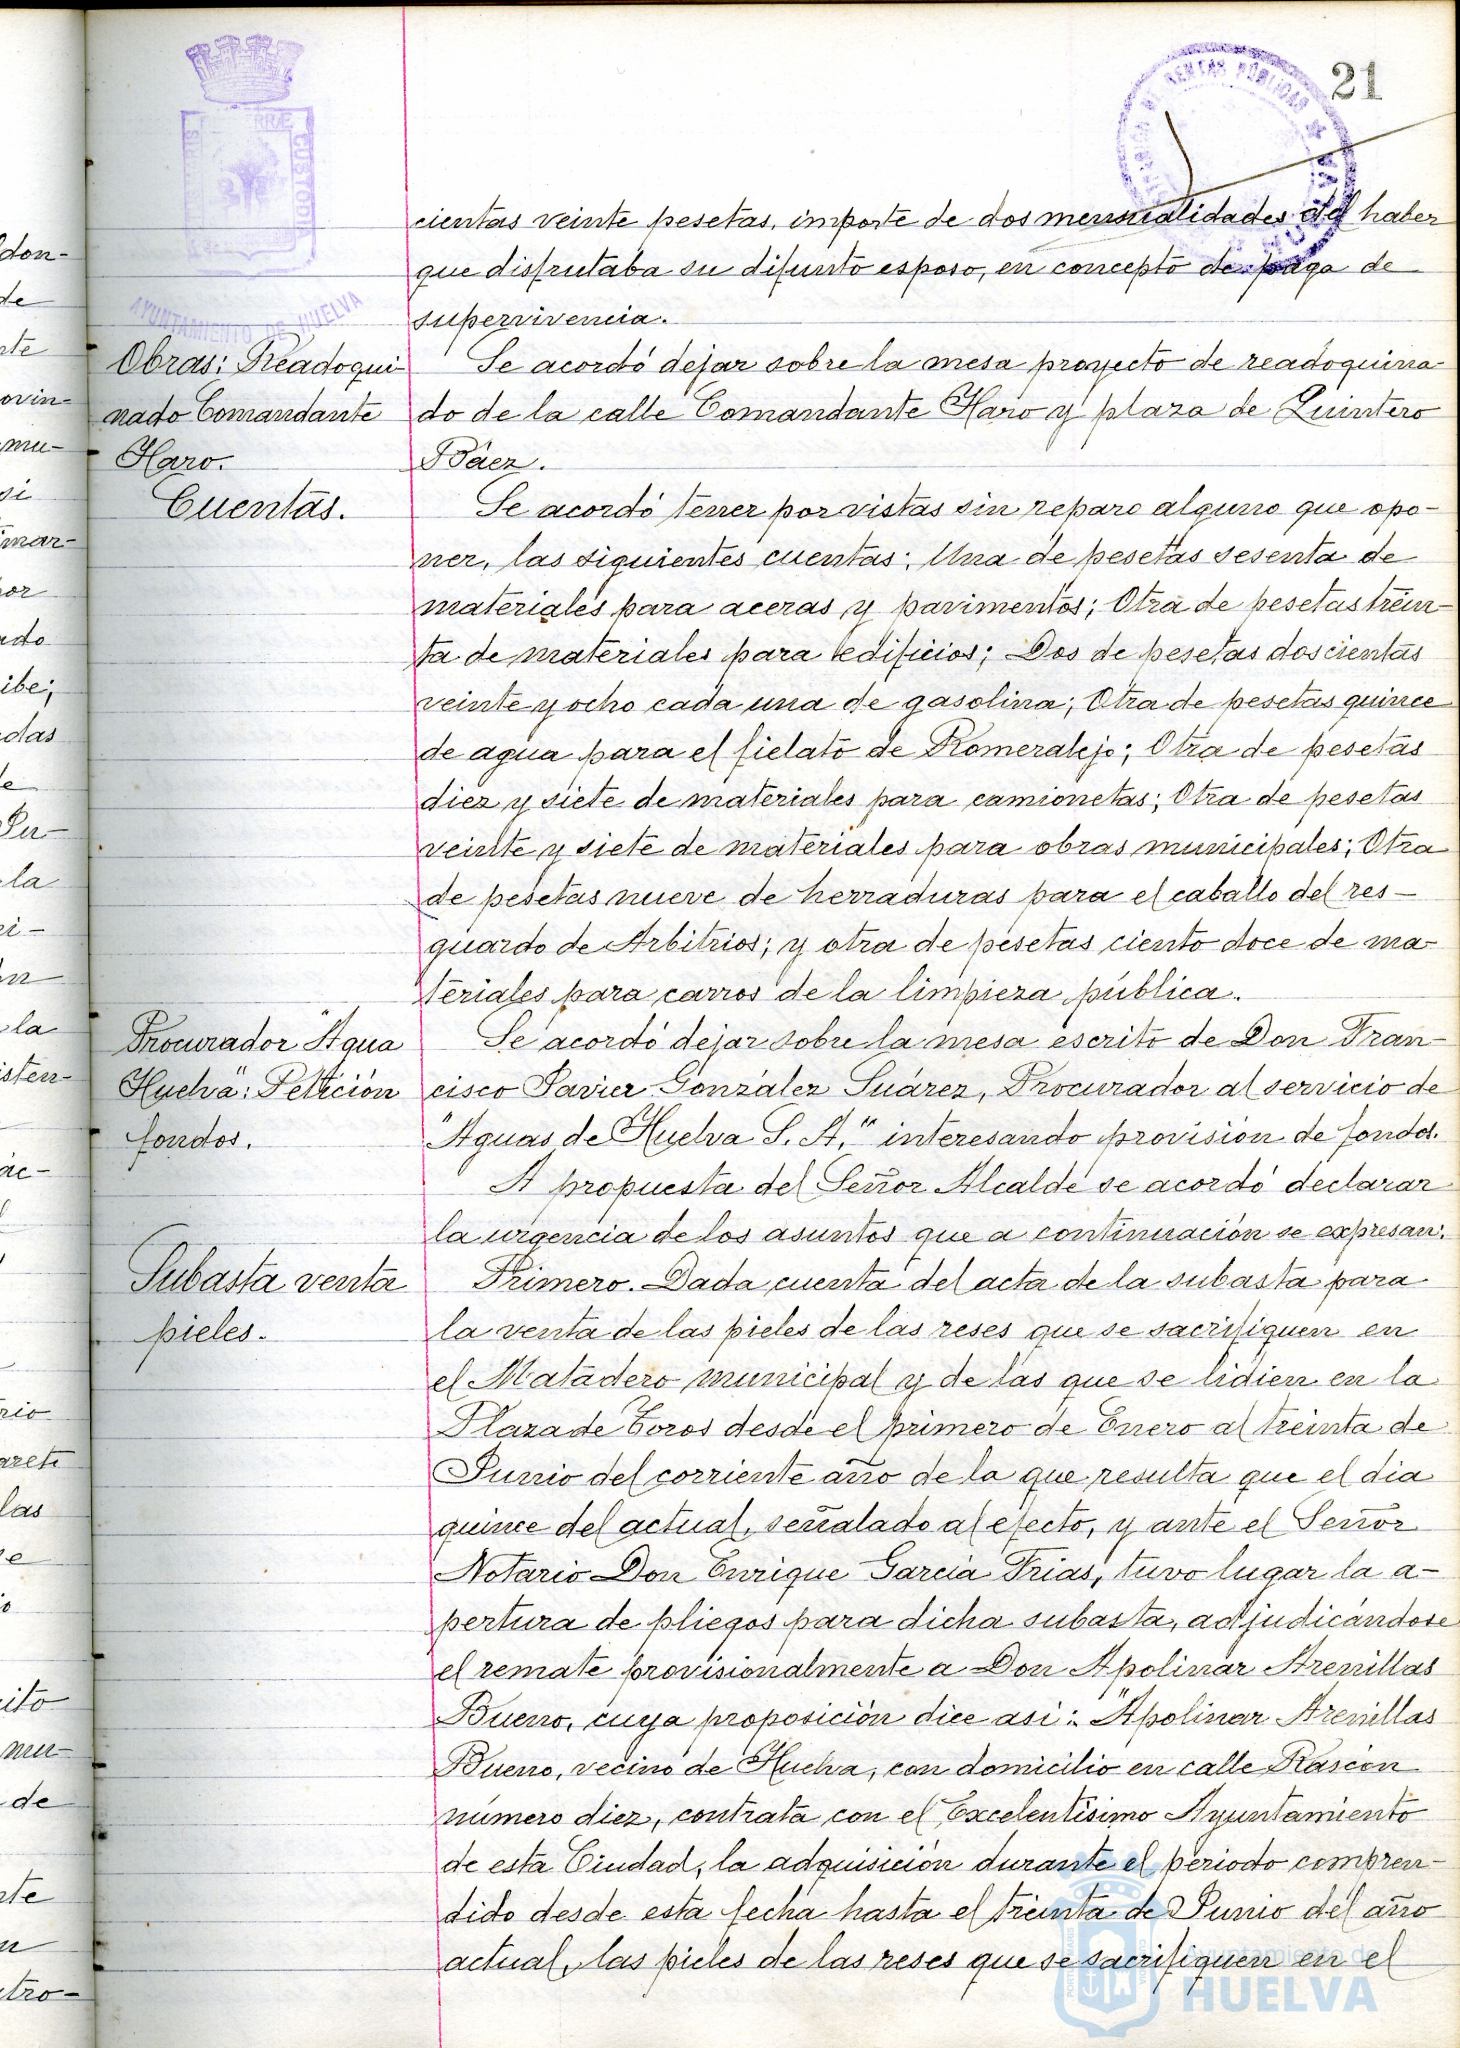 21
cientas veinte pesetas, importe de dos mensualidades del haber
que disfrutaba su difunto esposo, en concepto de paga de
supervivencia.
Obras: Readoqui-
nado Comandante
Haro.
Se acordó dejar sobre la mesa proyecto de readoquina-
do de la calle Comandante Haro y plaza de Quintero
Báez.
Cuentas.
Se acordó tener por vistas sin reparo alguno que opo-
ner, las siguientes cuentas: Una de pesetas sesenta de
materiales para aceras y pavimentos; Otra de pesetas trein-
ta de materiales para edificios; Dos de pesetas doscientas
veinte y ocho cada una de gasolina; Otra de pesetas quince
de agua para el fielato de Romeralejo; Otra de pesetas
diez y siete de materiales para camionetas; Otra de pesetas
veinte y siete de materiales para obras municipales; Otra
de pesetas nueve de herraduras para el caballo del res-
guardo de Arbitrios; y otra de pesetas ciento doce de ma-
teriales para carros de la limpieza pública.
Procurador "Agua
Huelva": Petición
fondos.
Se acordó dejar sobre la mesa escrito de Don Fran-
cisco Javier González Suárez, Procurador al servicio de
"Aguas de Huelva S. A." interesando provisión de fondos.
A propuesta del Señor Alcalde se acordó declarar
la urgencia de los asuntos que a continuación se expresan:
Subasta venta
pieles.
Primero. Dada cuenta del acta de la subasta para
la venta de las pieles de las reses que se sacrifiquen en
el Matadero municipal y de las que se lidien en la
Plaza de Toros desde el primero de Enero al treinta de
Junio del corriente año de la que resulta que el dia
quince del actual, señalado al efecto, y ante el Señor
Notario Don Enrique García Frias, tuvo lugar la a-
pertura de pliegos para dicha subasta, adjudicándose
el remate provisionalmente a Don Apolinar Arenillas
Bueno, cuya proposición dice asi: "Apolinar Arenillas
Bueno, vecino de Huelva, con domicilio en calle Rascón
número diez, contrata con el Excelentísimo Ayuntamiento
de esta Ciudad, la adquisición durante el periodo compren-
dido desde esta fecha hasta el treinta de Junio del año
actual, las pieles de las reses que se sacrifiquen en el
AYUNTAMIENTO DE HUELVA
CUSTODI
RENTAS PÚBLICAS
HUELVA
Ayuntamiento de
HUELVA